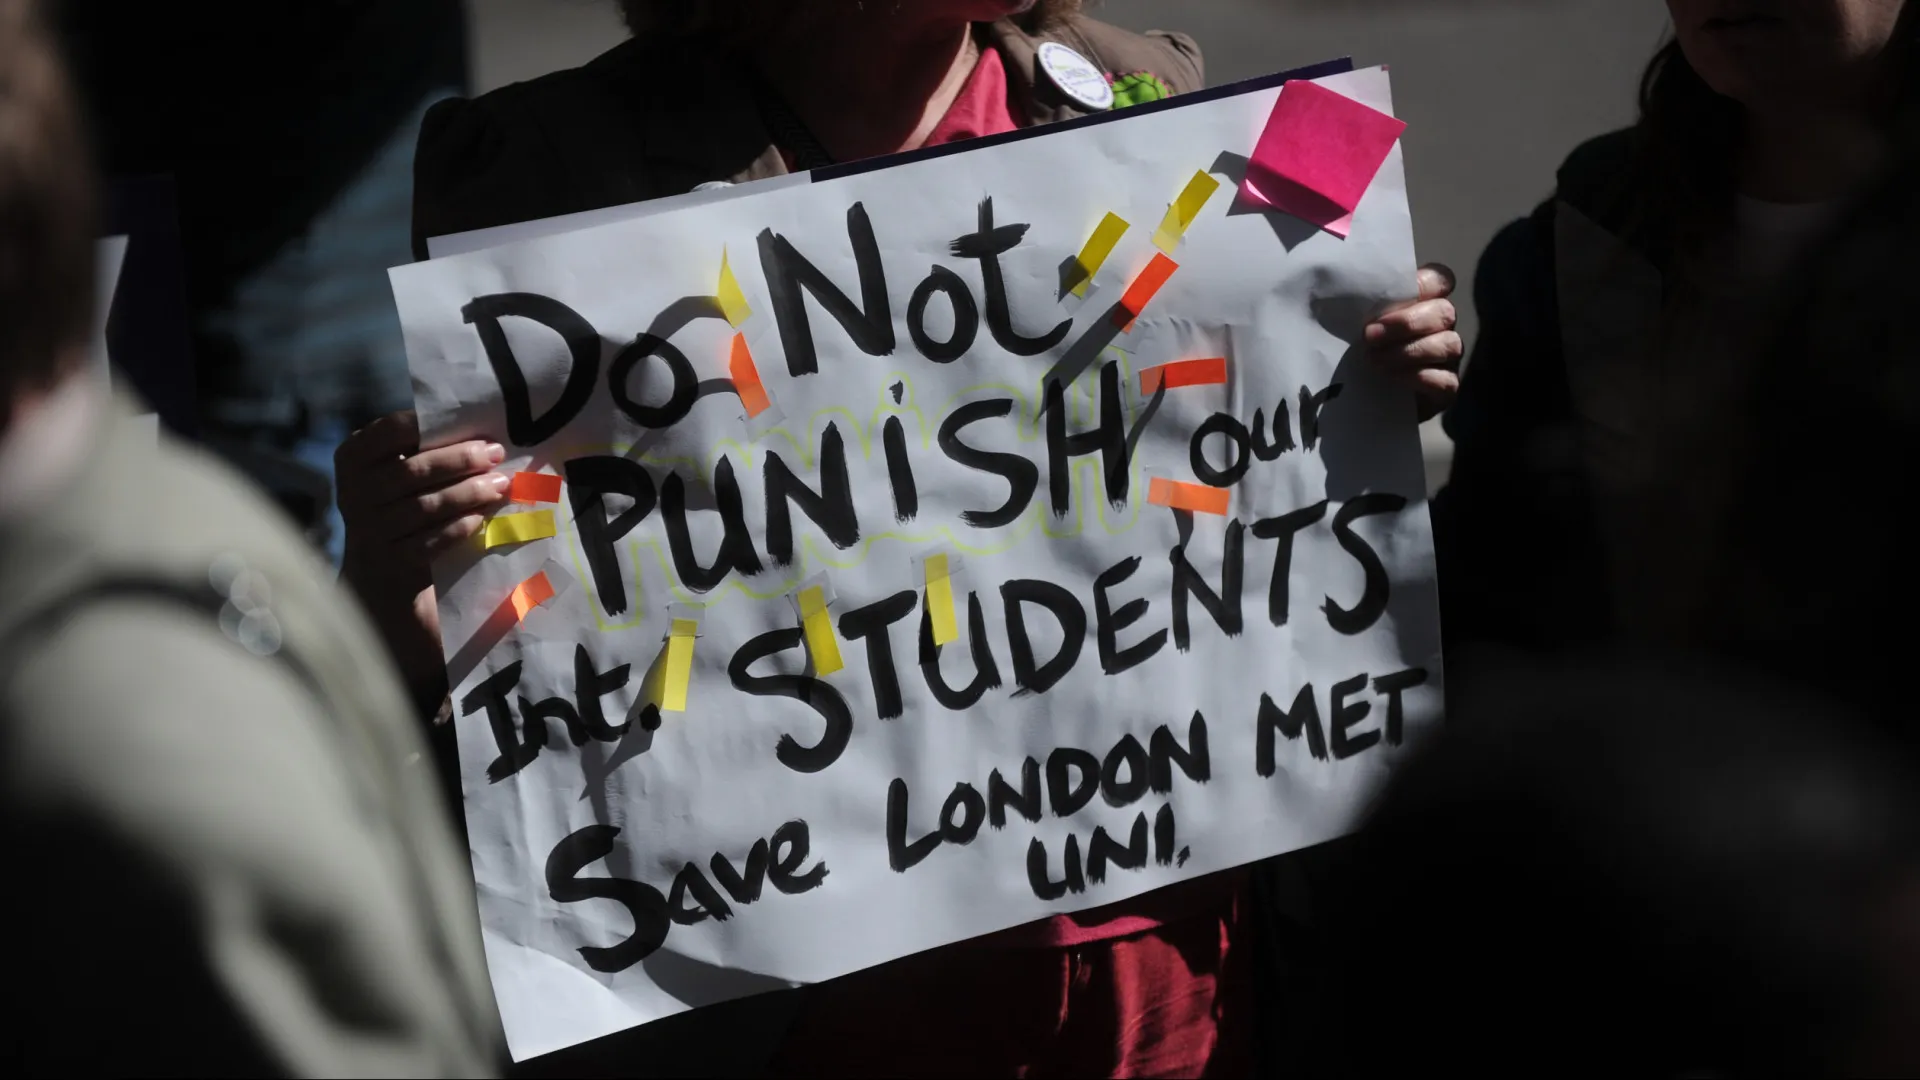 Do Not
PUNiSH our
Int. STUDENTS
Save LONDON MET
UNI.
UNISON